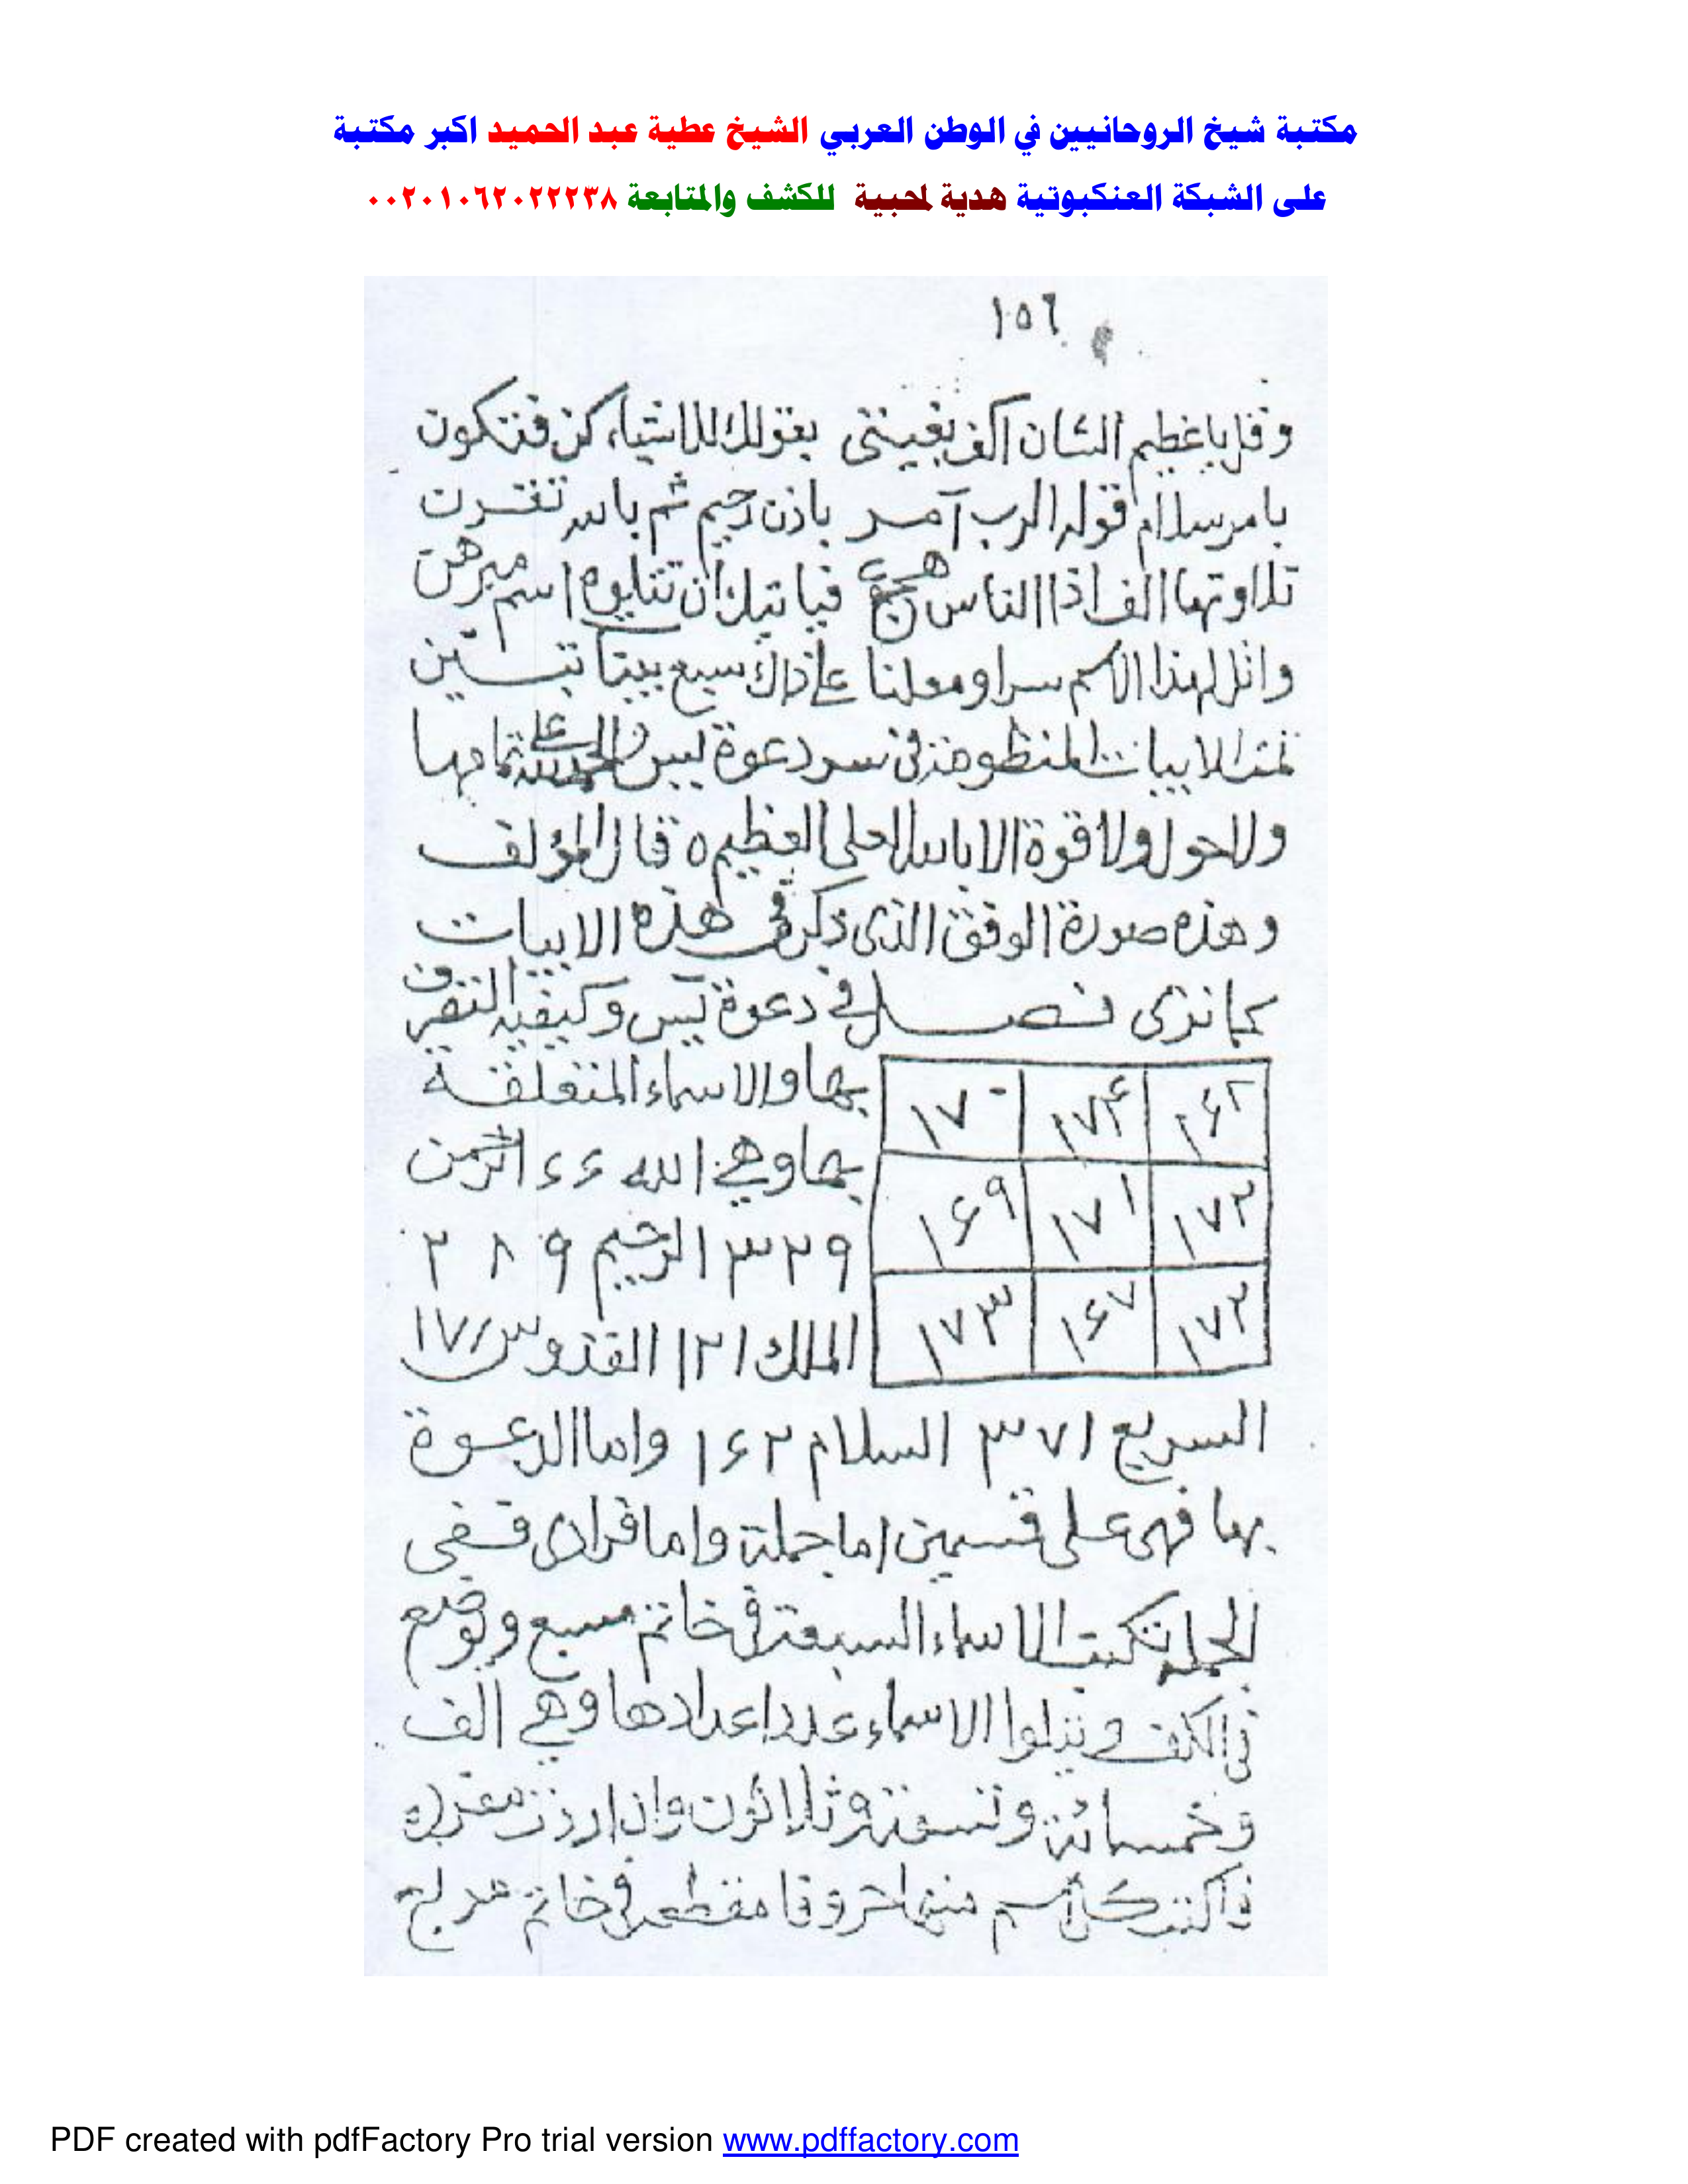 مكتبة شيخ الروحانيين في الوطن العربي الشيخ عطية عبد الحميد اكبر مكتبة
على الشبكة العنكبوتية هدية لمحبية للكشف والمتابعة ٠٠٢٠١٠٦٢٠٢٢٢٣٨
١٥٦
وقل يا عظيم الشان اكف بغيتى بقولك للاشياء كن فتكون
بامر سلام قولا لرب آمر باذن رحيم ثم بالله تقسرت
تلاوتها الف اذا الناس هجع فياتيك ان تتلوه اسم
واتل لهذا الاسم سرا ومعلنا على ذاك سبع بينا
تمت الابيات المنظومة في سر دعوة يس والحمد لله على تمامها
ولا حول ولا قوة الا بالله العلى العظيم ٥ قال المؤلف
وهذه صورة الوفق الذى ذكر في هذه الابيات
كما ترى فصل في دعوة يس وكيفية التصرف
بها والاسماء المتعلقة
١٦٢ ١٧٤ ١٧٠
بها وهي الله ٤٤ الرحمن
١٧٢ ١٧١ ١٦٩
٣٢٩ الرحيم ٢٨٩
الملك ١٢١ القدوس ١٧١
١٧٢ ١٦٧ ١٧٣
السريع ٣٧١ السلام ١٦٢ واما الدعوة
بها فهى على قسمين اما جملة واما فرادى ففى
الجملة تكتب الاسماء السبعة في خاتم مسبع وتوضع
في الكف وتتلوا الاسماء عدد اعدادها وهي الف
وخمسمائة وتسعة وثلاثون وان اردت
فاكتب كل اسم منها حروفا مقطعة في خاتم
PDF created with pdfFactory Pro trial version www.pdffactory.com